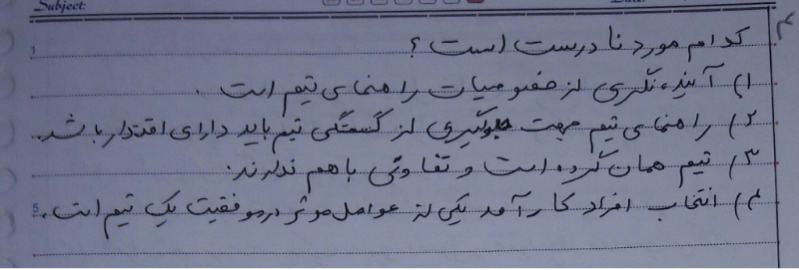 Subject:
۴
کدام مورد نادرست است؟
۱) آینده نگری از خصوصیات راهنمای تیم است.
۲) راهنمای تیم جهت جلوگیری از گسستگی تیم باید دارای اقتدار باشد.
۳) تیم همان گروه است و تفاوتی باهم ندارند.
۴) انتخاب افراد کارآمد یکی از عوامل موثر در موفقیت یک تیم است.